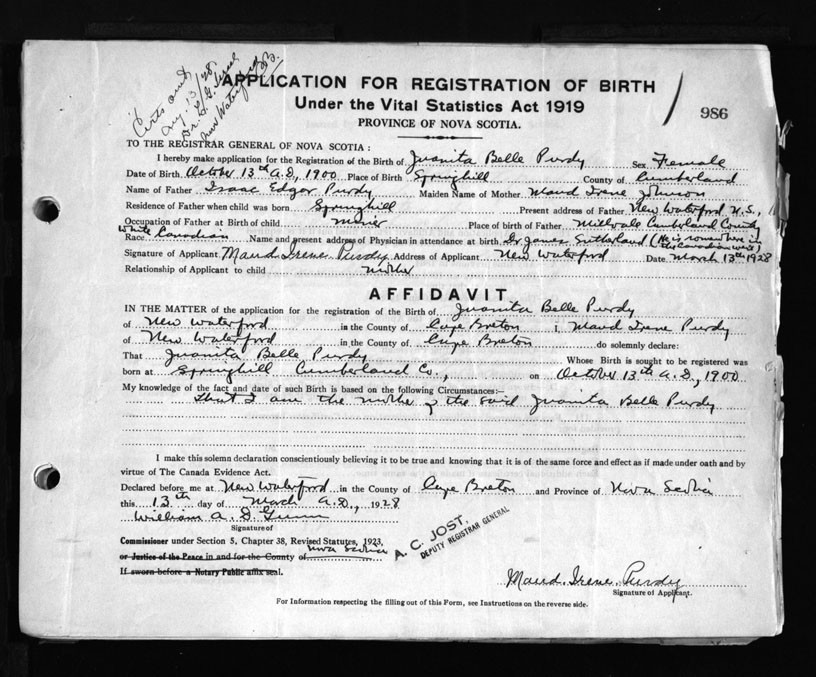 Certs sent
Aug 13/28
Dr.
New Waterford
APPLICATION FOR REGISTRATION OF BIRTH
Under the Vital Statistics Act 1919
PROVINCE OF NOVA SCOTIA.
986
TO THE REGISTRAR GENERAL OF NOVA SCOTIA :
I hereby make application for the Registration of the Birth of Juanita Belle Purdy Sex Female
Date of Birth October 13th A.D, 1900 Place of Birth Springhill County of Cumberland
Name of Father Isaac Edgar Purdy Maiden Name of Mother Maud Irene Johnson
Residence of Father when child was born Springhill Present address of Father New Waterford N.S.,
Occupation of Father at Birth of child Miner Place of birth of Father Millvale Cumberland County
Race White Canadian Name and present address of Physician in attendance at birth Dr James Sutherland (He is somewhere in the Canadian West)
Signature of Applicant Maud Irene Purdy Address of Applicant New Waterford Date March 13th 1928
Relationship of Applicant to child mother
AFFIDAVIT
IN THE MATTER of the application for the registration of the Birth of Juanita Belle Purdy
of New Waterford in the County of Cape Breton I, Maud Irene Purdy
of New Waterford in the County of Cape Breton do solemnly declare:
That Juanita Belle Purdy Whose Birth is sought to be registered was
born at Springhill Cumberland Co., on October 13th A.D., 1900
My knowledge of the fact and date of such Birth is based on the following Circumstances:—
That I am the mother of the said Juanita Belle Purdy
I make this solemn declaration conscientiously believing it to be true and knowing that it is of the same force and effect as if made under oath and by
virtue of The Canada Evidence Act.
Declared before me at New Waterford in the County of Cape Breton and Province of Nova Scotia
this 13th day of March A.D., 1928
William A. D. Gunn
Signature of
Commissioner under Section 5, Chapter 38, Revised Statutes, 1923,
or Justice of the Peace in and for the County of Nova Scotia
If sworn before a Notary Public affix seal.
A. C. JOST,
DEPUTY REGISTRAR GENERAL
Maud Irene Purdy
Signature of Applicant.
For Information respecting the filling out of this Form, see Instructions on the reverse side.